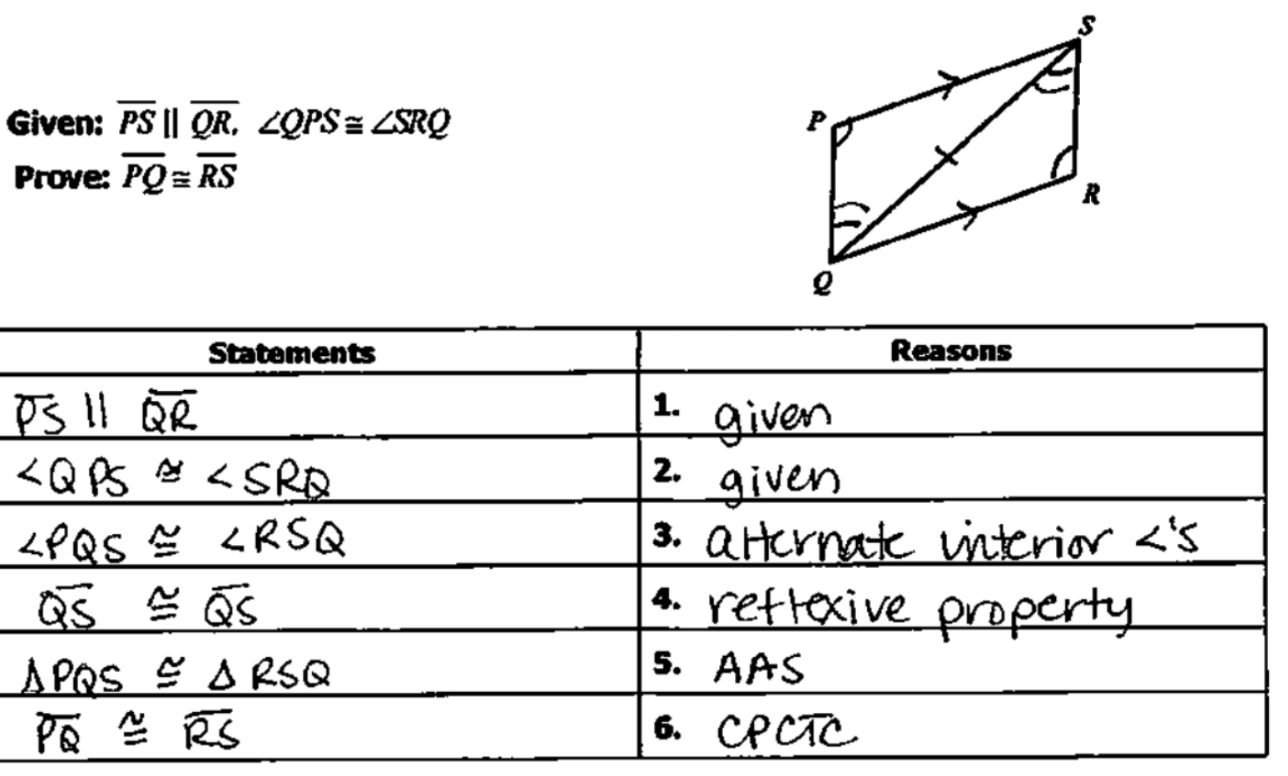 S
Given: PS || QR, ∠QPS ≅ ∠SRQ
P
Prove: PQ ≅ RS
R
Q
Statements Reasons
PS || QR 1. given
∠QPS ≅ ∠SRQ 2. given
∠PQS ≅ ∠RSQ 3. alternate interior ∠'s
QS ≅ QS 4. reflexive property
ΔPQS ≅ ΔRSQ 5. AAS
PQ ≅ RS 6. CPCTC